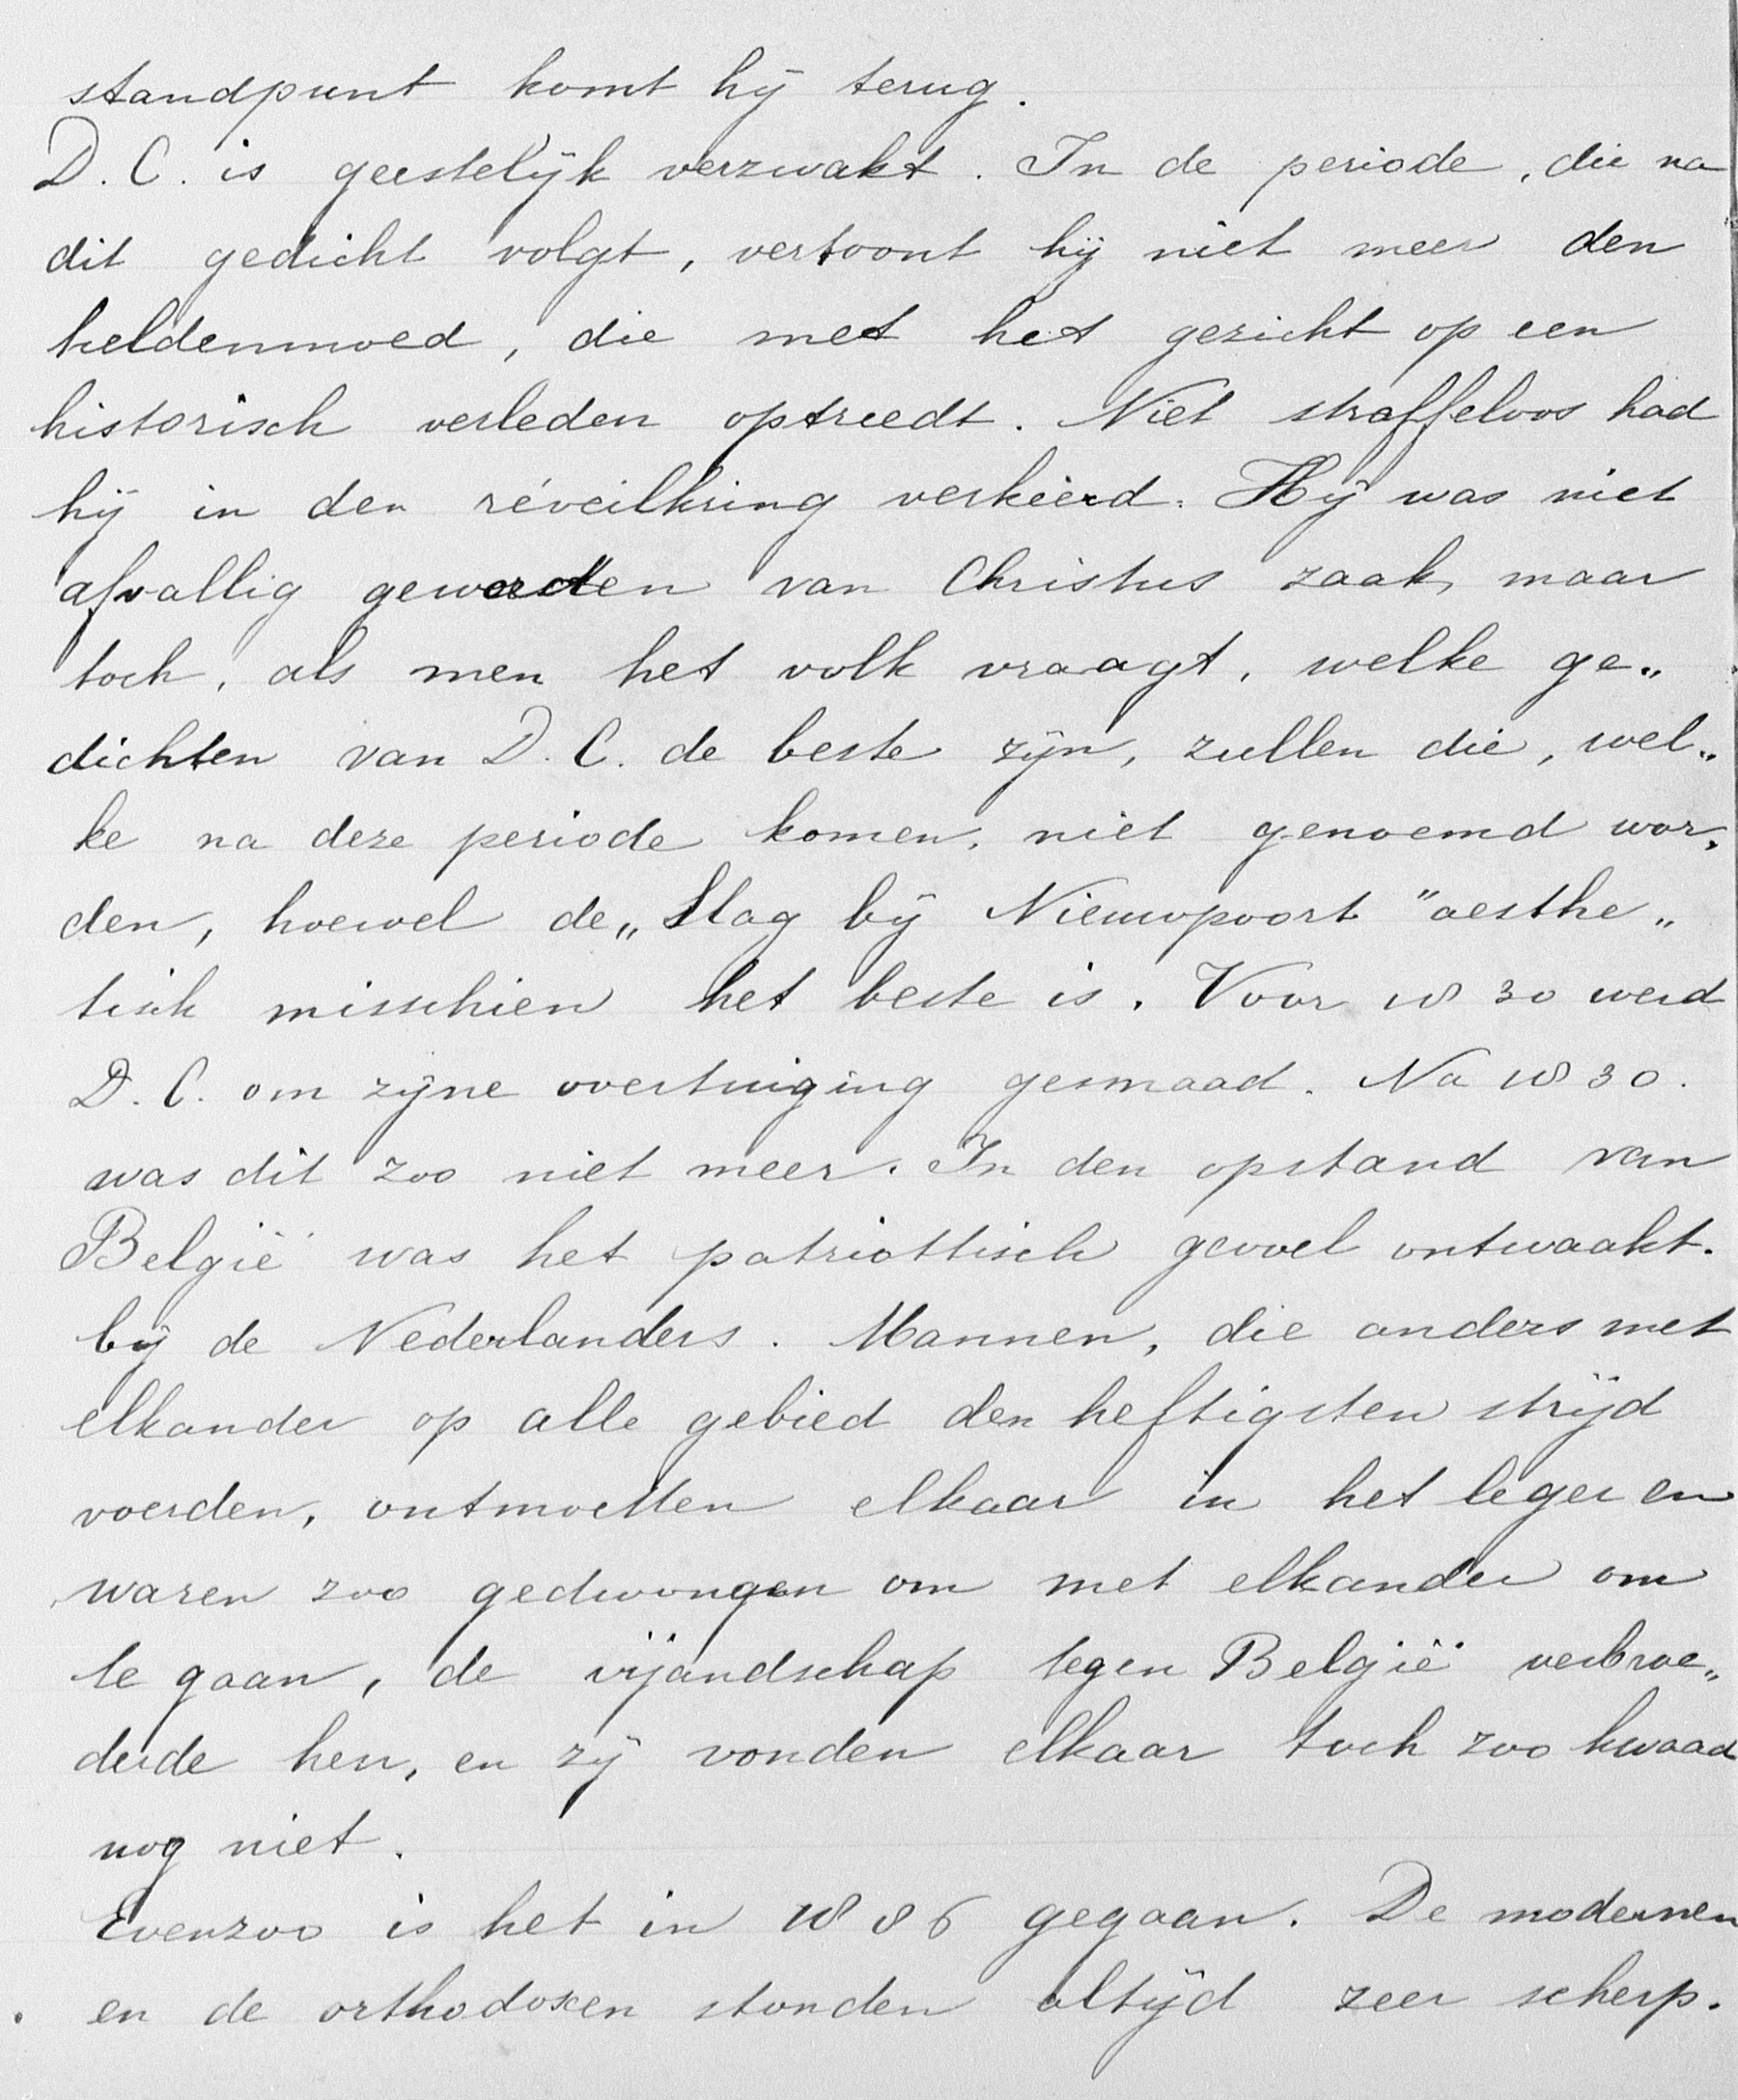 standpunt komt hij terug.
D. C. is geestelijk verzwakt. In de periode, die na
dit gedicht volgt, vertoont hij niet meer den
heldenmoed, die met het gezicht op een
historisch verleden optreedt. Niet straffeloos had
hij in den réveilkring verkeerd. Hij was niet
afvallig geworden van Christus zaak, maar
toch, als men het volk vraagt, welke ge„
dichten van D. C. de beste zijn, zullen die, wel„
ke na deze periode komen, niet genoemd wor„
den, hoewel de „Slag bij Nieuwpoort" aesthe„
tisch misschien het beste is. Voor 1830 werd
D. C. om zijne overtuiging gesmaad. Na 1830.
was dit zoo niet meer. In den opstand van
België was het patriottisch gevoel ontwaakt.
bij de Nederlanders. Mannen, die anders met
elkander op alle gebied den heftigsten strijd
voerden, ontmoetten elkaar in het leger en
waren zoo gedwongen om met elkander om
te gaan, de vijandschap tegen België verbroe„
derde hen, en zij vonden elkaar toch zoo kwaad
nog niet.
Evenzoo is het in 1886 gegaan. De modernen
en de orthodoxen stonden altijd zeer scherp.